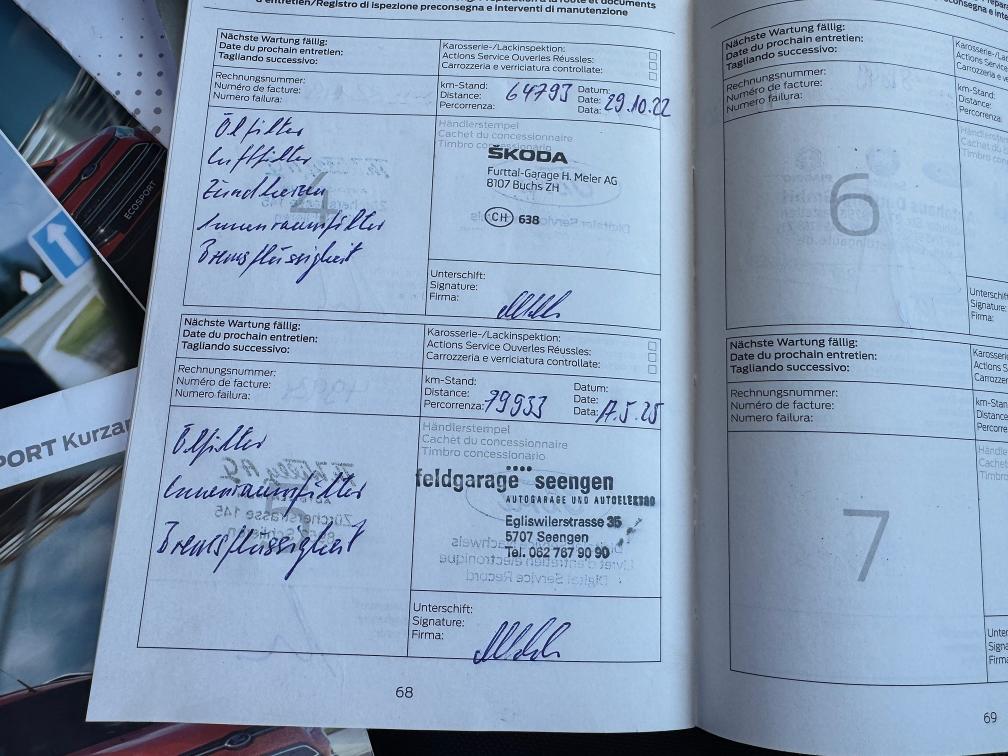 d'entretien/Registro di ispezione preconsegna e interventi di manutenzione
Nächste Wartung fällig:
Date du prochain entretien:
Tagliando successivo:
Karosserie-/Lackinspektion:
Actions Service Ouverles Réussles:
Carrozzeria e verriciatura controllate:
Rechnungsnummer:
Numéro de facture:
Numero failura:
km-Stand:
Distance:
Percorrenza:
64793
Datum:
Date:
Data:
29.10.22
Ölfilter
Luftfilter
Zündkerzen
Innenraumfilter
Bremsflüssigkeit
4
Händlerstempel
Cachet du concessionnaire
Timbro concessionario
ŠKODA
Furttal-Garage H. Meier AG
8107 Buchs ZH
CH 638
Unterschift:
Signature:
Firma:
Nächste Wartung fällig:
Date du prochain entretien:
Tagliando successivo:
Karosserie-/Lackinspektion:
Actions Service Ouverles Réussles:
Carrozzeria e verriciatura controllate:
Rechnungsnummer:
Numéro de facture:
Numero failura:
km-Stand:
Distance:
Percorrenza:
79933
Datum:
Date:
Data:
Ölfilter
Innenraumfilter
Bremsflüssigkeit
5
Händlerstempel
Cachet du concessionnaire
Timbro concessionario
feldgarage seengen
AUTOGARAGE UND AUTOELEKTRO
Egliswilerstrasse 35
5707 Seengen
Tel. 062 767 90 90
Unterschift:
Signature:
Firma:
68
Nächste Wartung fällig:
Date du prochain entretien:
Tagliando successivo:
Rechnungsnummer:
Numéro de facture:
Numero failura:
km-Stand:
Distance:
Percorrenza:
6
Unterschift:
Signature:
Firma:
Nächste Wartung fällig:
Date du prochain entretien:
Tagliando successivo:
Rechnungsnummer:
Numéro de facture:
Numero failura:
7
69
ECOSPORT
PORT Kurzan